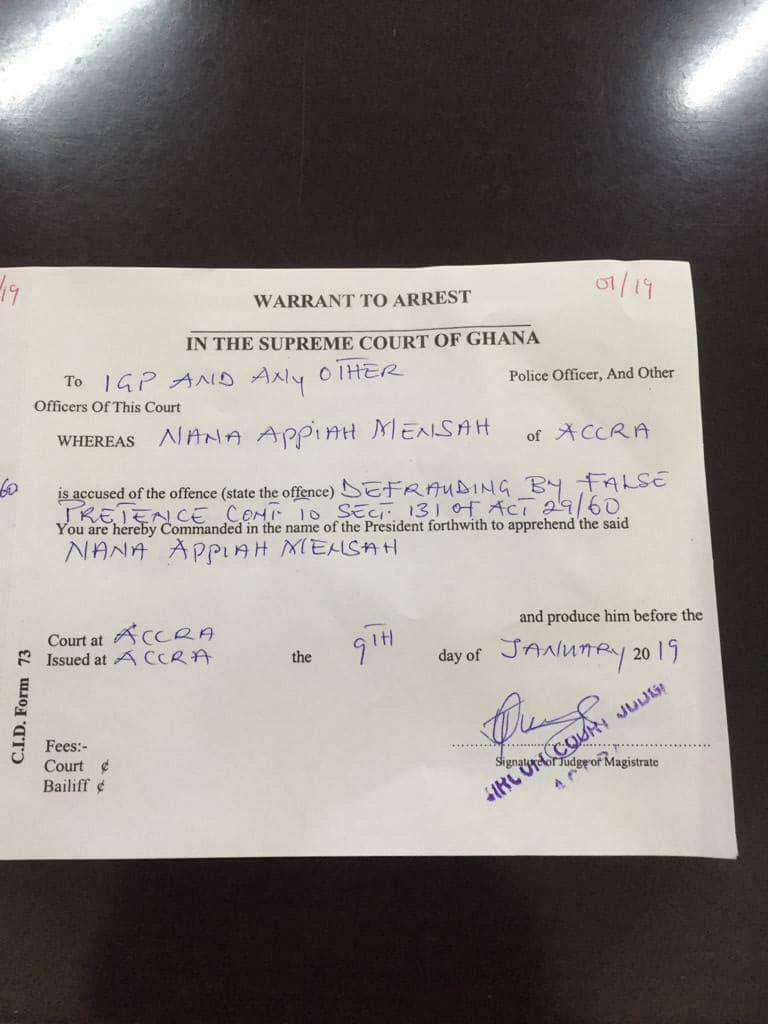 /19
01/19
WARRANT TO ARREST
IN THE SUPREME COURT OF GHANA
To IGP AND ANY OTHER Police Officer, And Other
Officers Of This Court
WHEREAS NANA APPIAH MENSAH of ACCRA
60
is accused of the offence (state the offence) DEFRAUDING BY FALSE
PRETENCE CONT. TO SECT. 131 OF ACT 29/60
You are hereby Commanded in the name of the President forthwith to apprehend the said
NANA APPIAH MENSAH
and produce him before the
Court at ACCRA
Issued at ACCRA the 9TH day of JANUARY 2019
C.I.D. Form 73
Fees:-
Court ¢
Bailiff ¢
Signature of Judge or Magistrate
COURT JUDGE